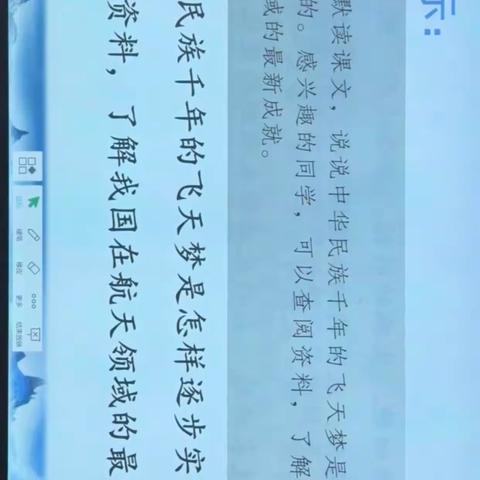 示：
默读课文，说说中华民族千年的飞天梦是
的。感兴趣的同学，可以查阅资料，了解
域的最新成就。
民族千年的飞天梦是怎样逐步实
资料，了解我国在航天领域的最
硬笔 更多 结束放映